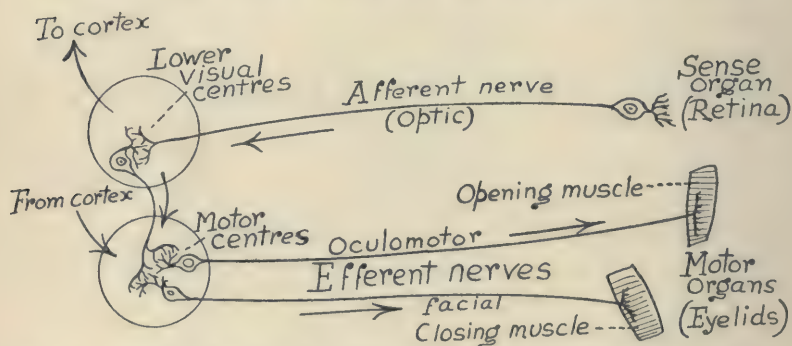 To cortex
Lower
visual
centres
Afferent nerve
(Optic)
Sense
organ
(Retina)
From cortex
Motor
centres
Opening muscle
Oculomotor
Efferent nerves
facial
Closing muscle
Motor
organs
(Eyelids)